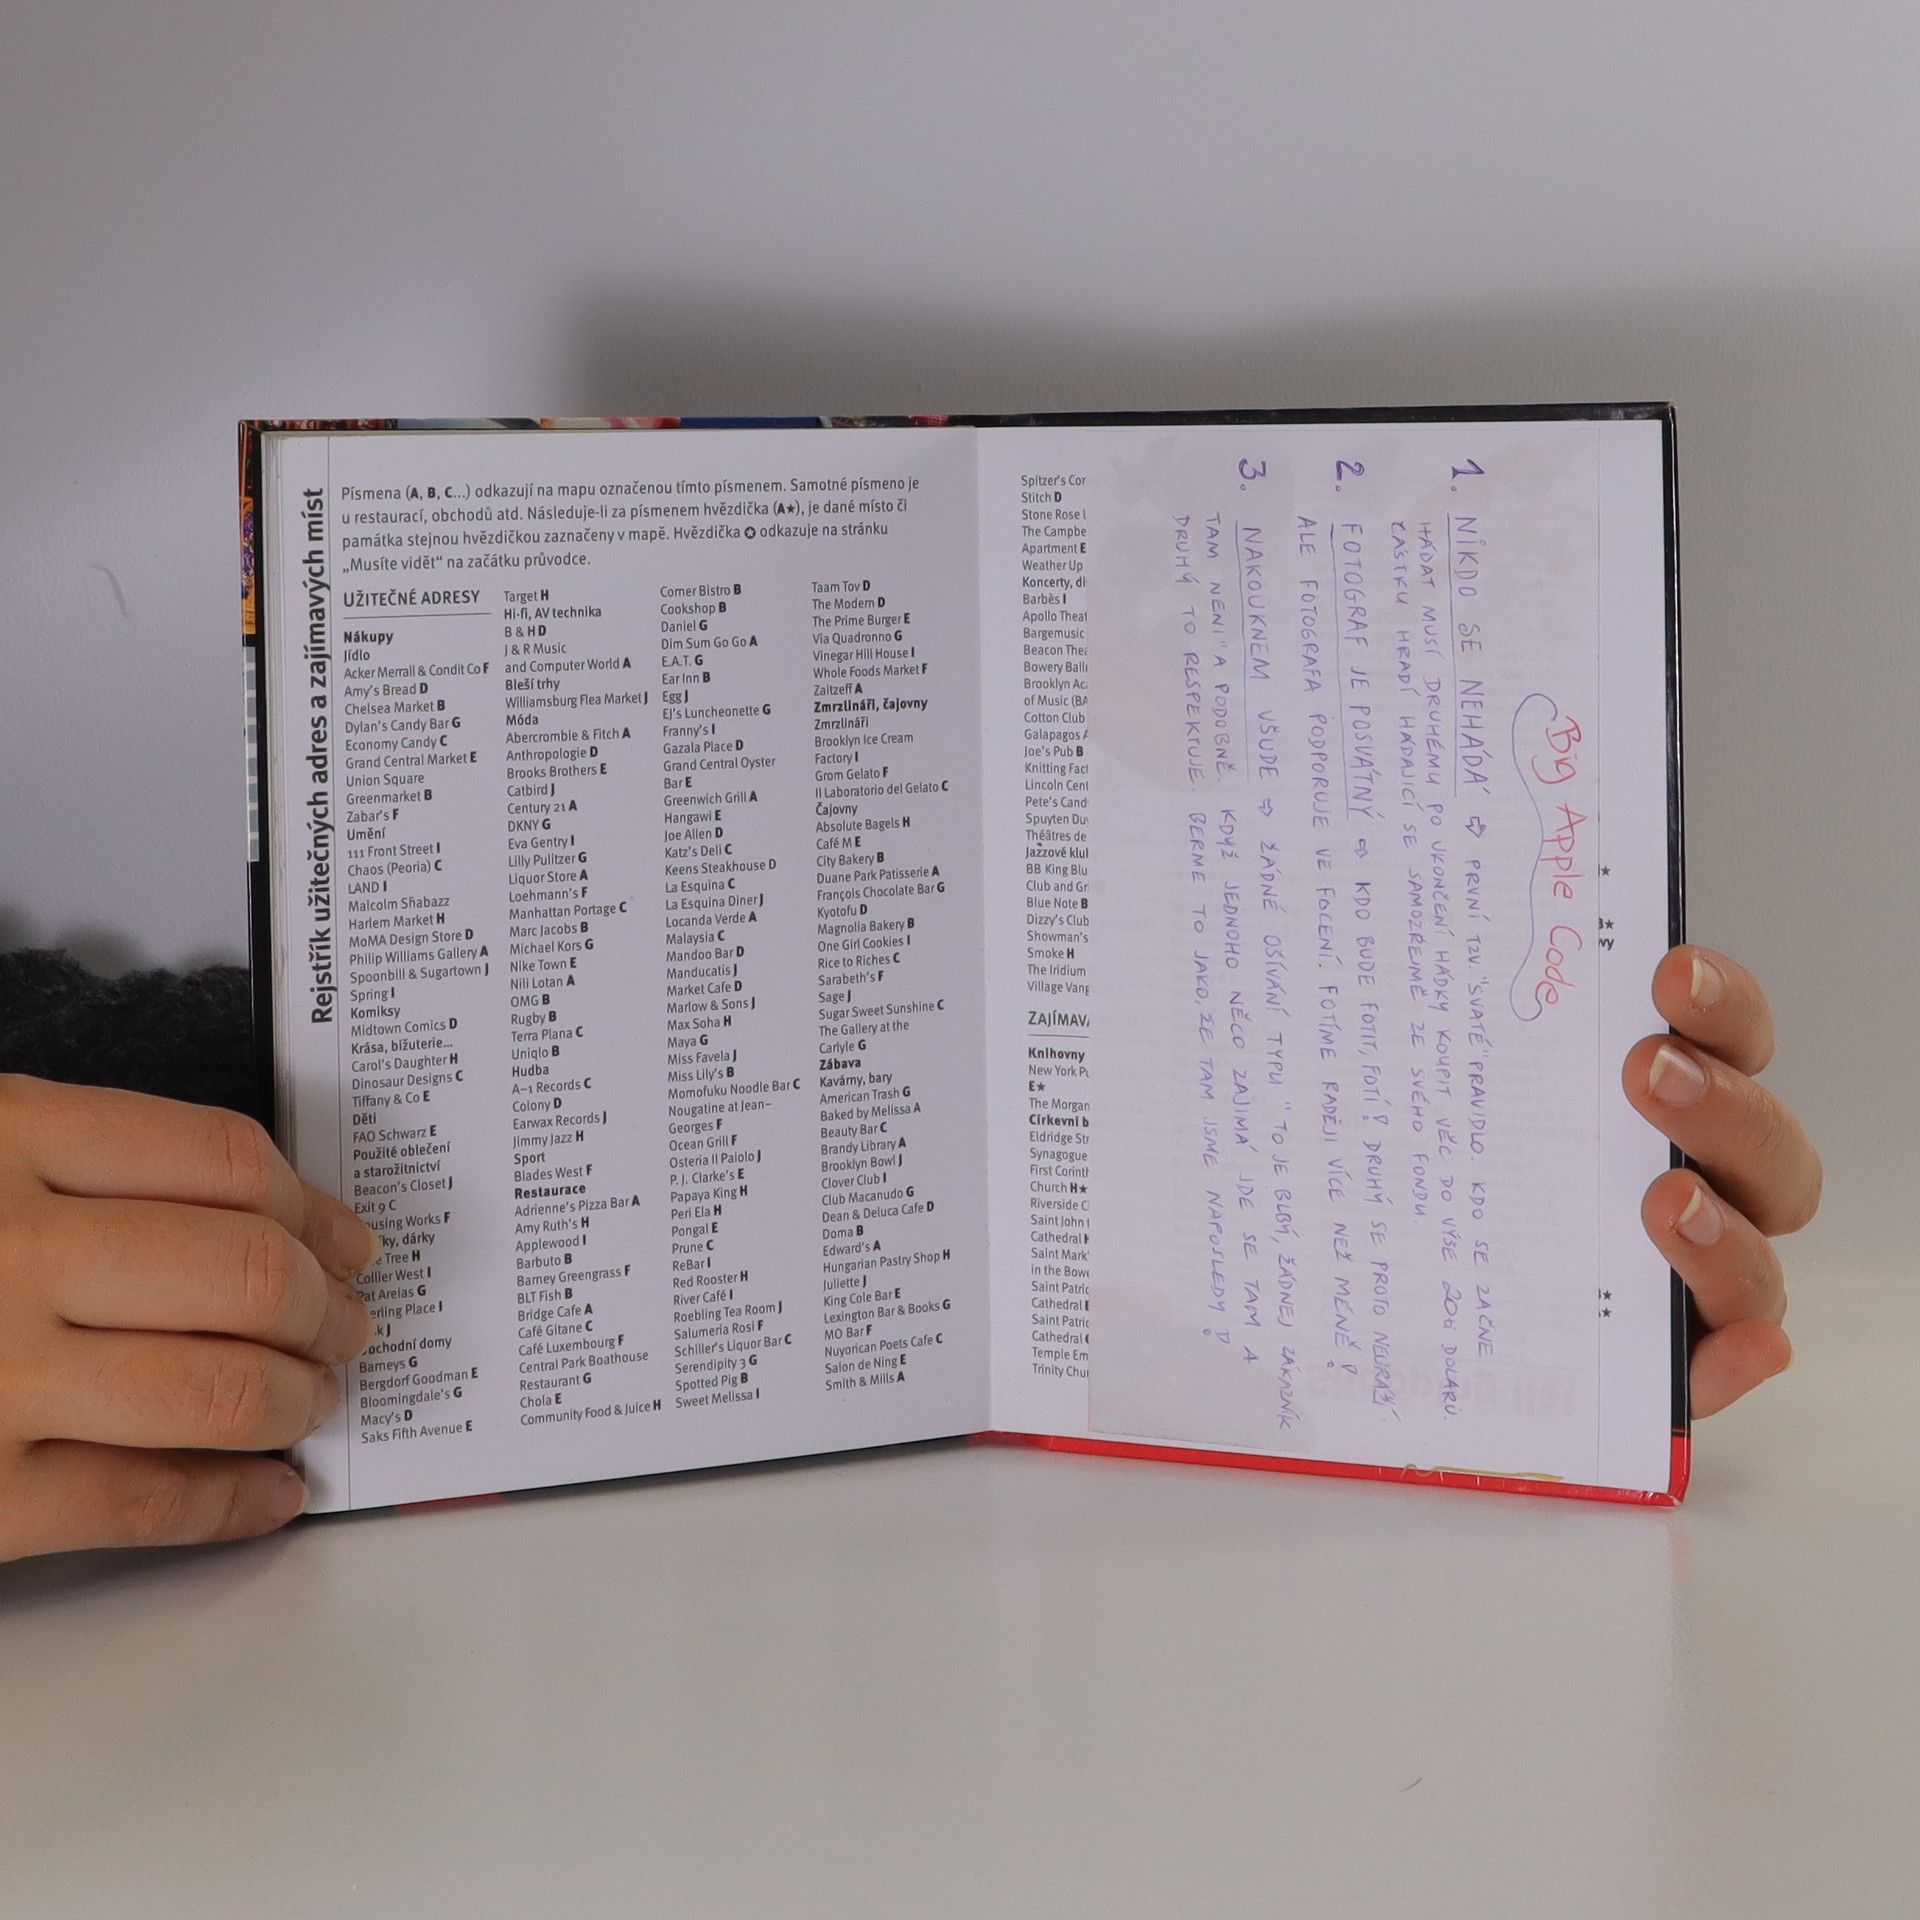 Rejstřík užitečných adres a zajímavých míst
Písmena (A, B, C...) odkazují na mapu označenou tímto písmenem. Samotné písmeno je
u restaurací, obchodů atd. Následuje-li za písmenem hvězdička (A★), je dané místo či
památka stejnou hvězdičkou zaznačeny v mapě. Hvězdička ✪ odkazuje na stránku
„Musíte vidět“ na začátku průvodce.
UŽITEČNÉ ADRESY
Nákupy
Jídlo
Acker Merrall & Condit Co F
Amy's Bread D
Chelsea Market B
Dylan's Candy Bar G
Economy Candy C
Grand Central Market E
Union Square
Greenmarket B
Zabar's F
Umění
111 Front Street I
Chaos (Peoria) C
LAND I
Malcolm Shabazz
Harlem Market H
MoMA Design Store D
Philip Williams Gallery A
Spoonbill & Sugartown J
Spring I
Komiksy
Midtown Comics D
Krása, bižuterie...
Carol's Daughter H
Dinosaur Designs C
Tiffany & Co E
Děti
FAO Schwarz E
Použité oblečení
a starožitnictví
Beacon's Closet J
Exit 9 C
ousing Works F
ky, dárky
e Tree H
Collier West I
Pat Areias G
erling Place I
k J
ochodní domy
Barneys G
Bergdorf Goodman E
Bloomingdale's G
Macy's D
Saks Fifth Avenue E
Target H
Hi-fi, AV technika
B & H D
J & R Music
and Computer World A
Bleší trhy
Williamsburg Flea Market J
Móda
Abercrombie & Fitch A
Anthropologie D
Brooks Brothers E
Catbird J
Century 21 A
DKNY G
Eva Gentry I
Lilly Pulitzer G
Liquor Store A
Loehmann's F
Manhattan Portage C
Marc Jacobs B
Michael Kors G
Nike Town E
Nili Lotan A
OMG B
Rugby B
Terra Plana C
Uniqlo B
Hudba
A–1 Records C
Colony D
Earwax Records J
Jimmy Jazz H
Sport
Blades West F
Restaurace
Adrienne's Pizza Bar A
Amy Ruth's H
Applewood I
Barbuto B
Barney Greengrass F
BLT Fish B
Bridge Cafe A
Café Gitane C
Café Luxembourg F
Central Park Boathouse
Restaurant G
Chola E
Community Food & Juice H
Corner Bistro B
Cookshop B
Daniel G
Dim Sum Go Go A
E.A.T. G
Ear Inn B
Egg J
EJ's Luncheonette G
Franny's I
Gazala Place D
Grand Central Oyster
Bar E
Greenwich Grill A
Hangawi E
Joe Allen D
Katz's Deli C
Keens Steakhouse D
La Esquina C
La Esquina Diner J
Locanda Verde A
Malaysia C
Mandoo Bar D
Manducatis J
Market Cafe D
Marlow & Sons J
Max Soha H
Maya G
Miss Favela J
Miss Lily's B
Momofuku Noodle Bar C
Nougatine at Jean–
Georges F
Ocean Grill F
Osteria Il Paiolo J
P. J. Clarke's E
Papaya King H
Peri Ela H
Pongal E
Prune C
ReBar I
Red Rooster H
River Café I
Roebling Tea Room J
Salumeria Rosi F
Schiller's Liquor Bar C
Serendipity 3 G
Spotted Pig B
Sweet Melissa I
Taam Tov D
The Modern D
The Prime Burger E
Via Quadronno G
Vinegar Hill House I
Whole Foods Market F
Zaitzeff A
Zmrzlináři, čajovny
Zmrzlináři
Brooklyn Ice Cream
Factory I
Grom Gelato F
Il Laboratorio del Gelato C
Čajovny
Absolute Bagels H
Café M E
City Bakery B
Duane Park Patisserie A
François Chocolate Bar G
Kyotofu D
Magnolia Bakery B
One Girl Cookies I
Rice to Riches C
Sarabeth's F
Sage J
Sugar Sweet Sunshine C
The Gallery at the
Carlyle G
Zábava
Kavárny, bary
American Trash G
Baked by Melissa A
Beauty Bar C
Brandy Library A
Brooklyn Bowl J
Clover Club I
Club Macanudo G
Dean & Deluca Cafe D
Doma B
Edward's A
Hungarian Pastry Shop H
Juliette J
King Cole Bar E
Lexington Bar & Books G
MO Bar F
Nuyorican Poets Cafe C
Salon de Ning E
Smith & Mills A
Spitzer's Cor
Stitch D
Stone Rose L
The Campbe
Apartment E
Weather Up
Koncerty, di
Barbès I
Apollo Theat
Bargemusic
Beacon Thea
Bowery Ball
Brooklyn Ac
of Music (BA
Cotton Club
Galapagos A
Joe's Pub B
Knitting Fact
Lincoln Cent
Pete's Cand
Spuyten Duy
Théâtres de
Jazzové klul
BB King Blu
Club and Gr
Blue Note B
Dizzy's Club
Showman's
Smoke H
The Iridium
Village Vang
ZAJÍMAV
Knihovny
New York Pu
E★
The Morgan
Církevní b
Eldridge Str
Synagogue
First Corinth
Church H★
Riverside C
Saint John t
Cathedral H
Saint Mark'
in the Bowe
Saint Patric
Cathedral E
Saint Patric
Cathedral C
Temple Em
Trinity Chur
Big Apple Code
1. NIKDO SE NEHÁDÁ ⇨ PRVNÍ TZV. "SVATÉ" PRAVIDLO. KDO SE ZAČNE
HÁDAT MUSÍ DRUHÉMU PO UKONČENÍ HÁDKY KOUPIT VĚC DO VÝŠE 20ti DOLARŮ.
ČÁSTKU HRADÍ HÁDAJÍCÍ SE SAMOZŘEJMĚ ZE SVÉHO FONDU.
2. FOTOGRAF JE POSVÁTNÝ ⇨ KDO BUDE FOTIT, FOTÍ! DRUHÝ SE PROTO NEURAŽÍ
ALE FOTOGRAFA PODPORUJE VE FOCENÍ. FOTÍME RADĚJI VÍCE NEŽ MÉNĚ!
3. NAKOUKNEM VŠUDE ⇨ ŽÁDNÉ OŠÍVÁNÍ TYPU "TO JE BLBÝ, ŽÁDNEJ ZÁKAZNÍK
TAM NENÍ" A PODOBNĚ. KDYŽ JEDNOHO NĚCO ZAJÍMÁ JDE SE TAM A
DRUHÝ TO RESPEKTUJE. BERME TO JAKO, ŽE TAM JSME NAPOSLEDY!